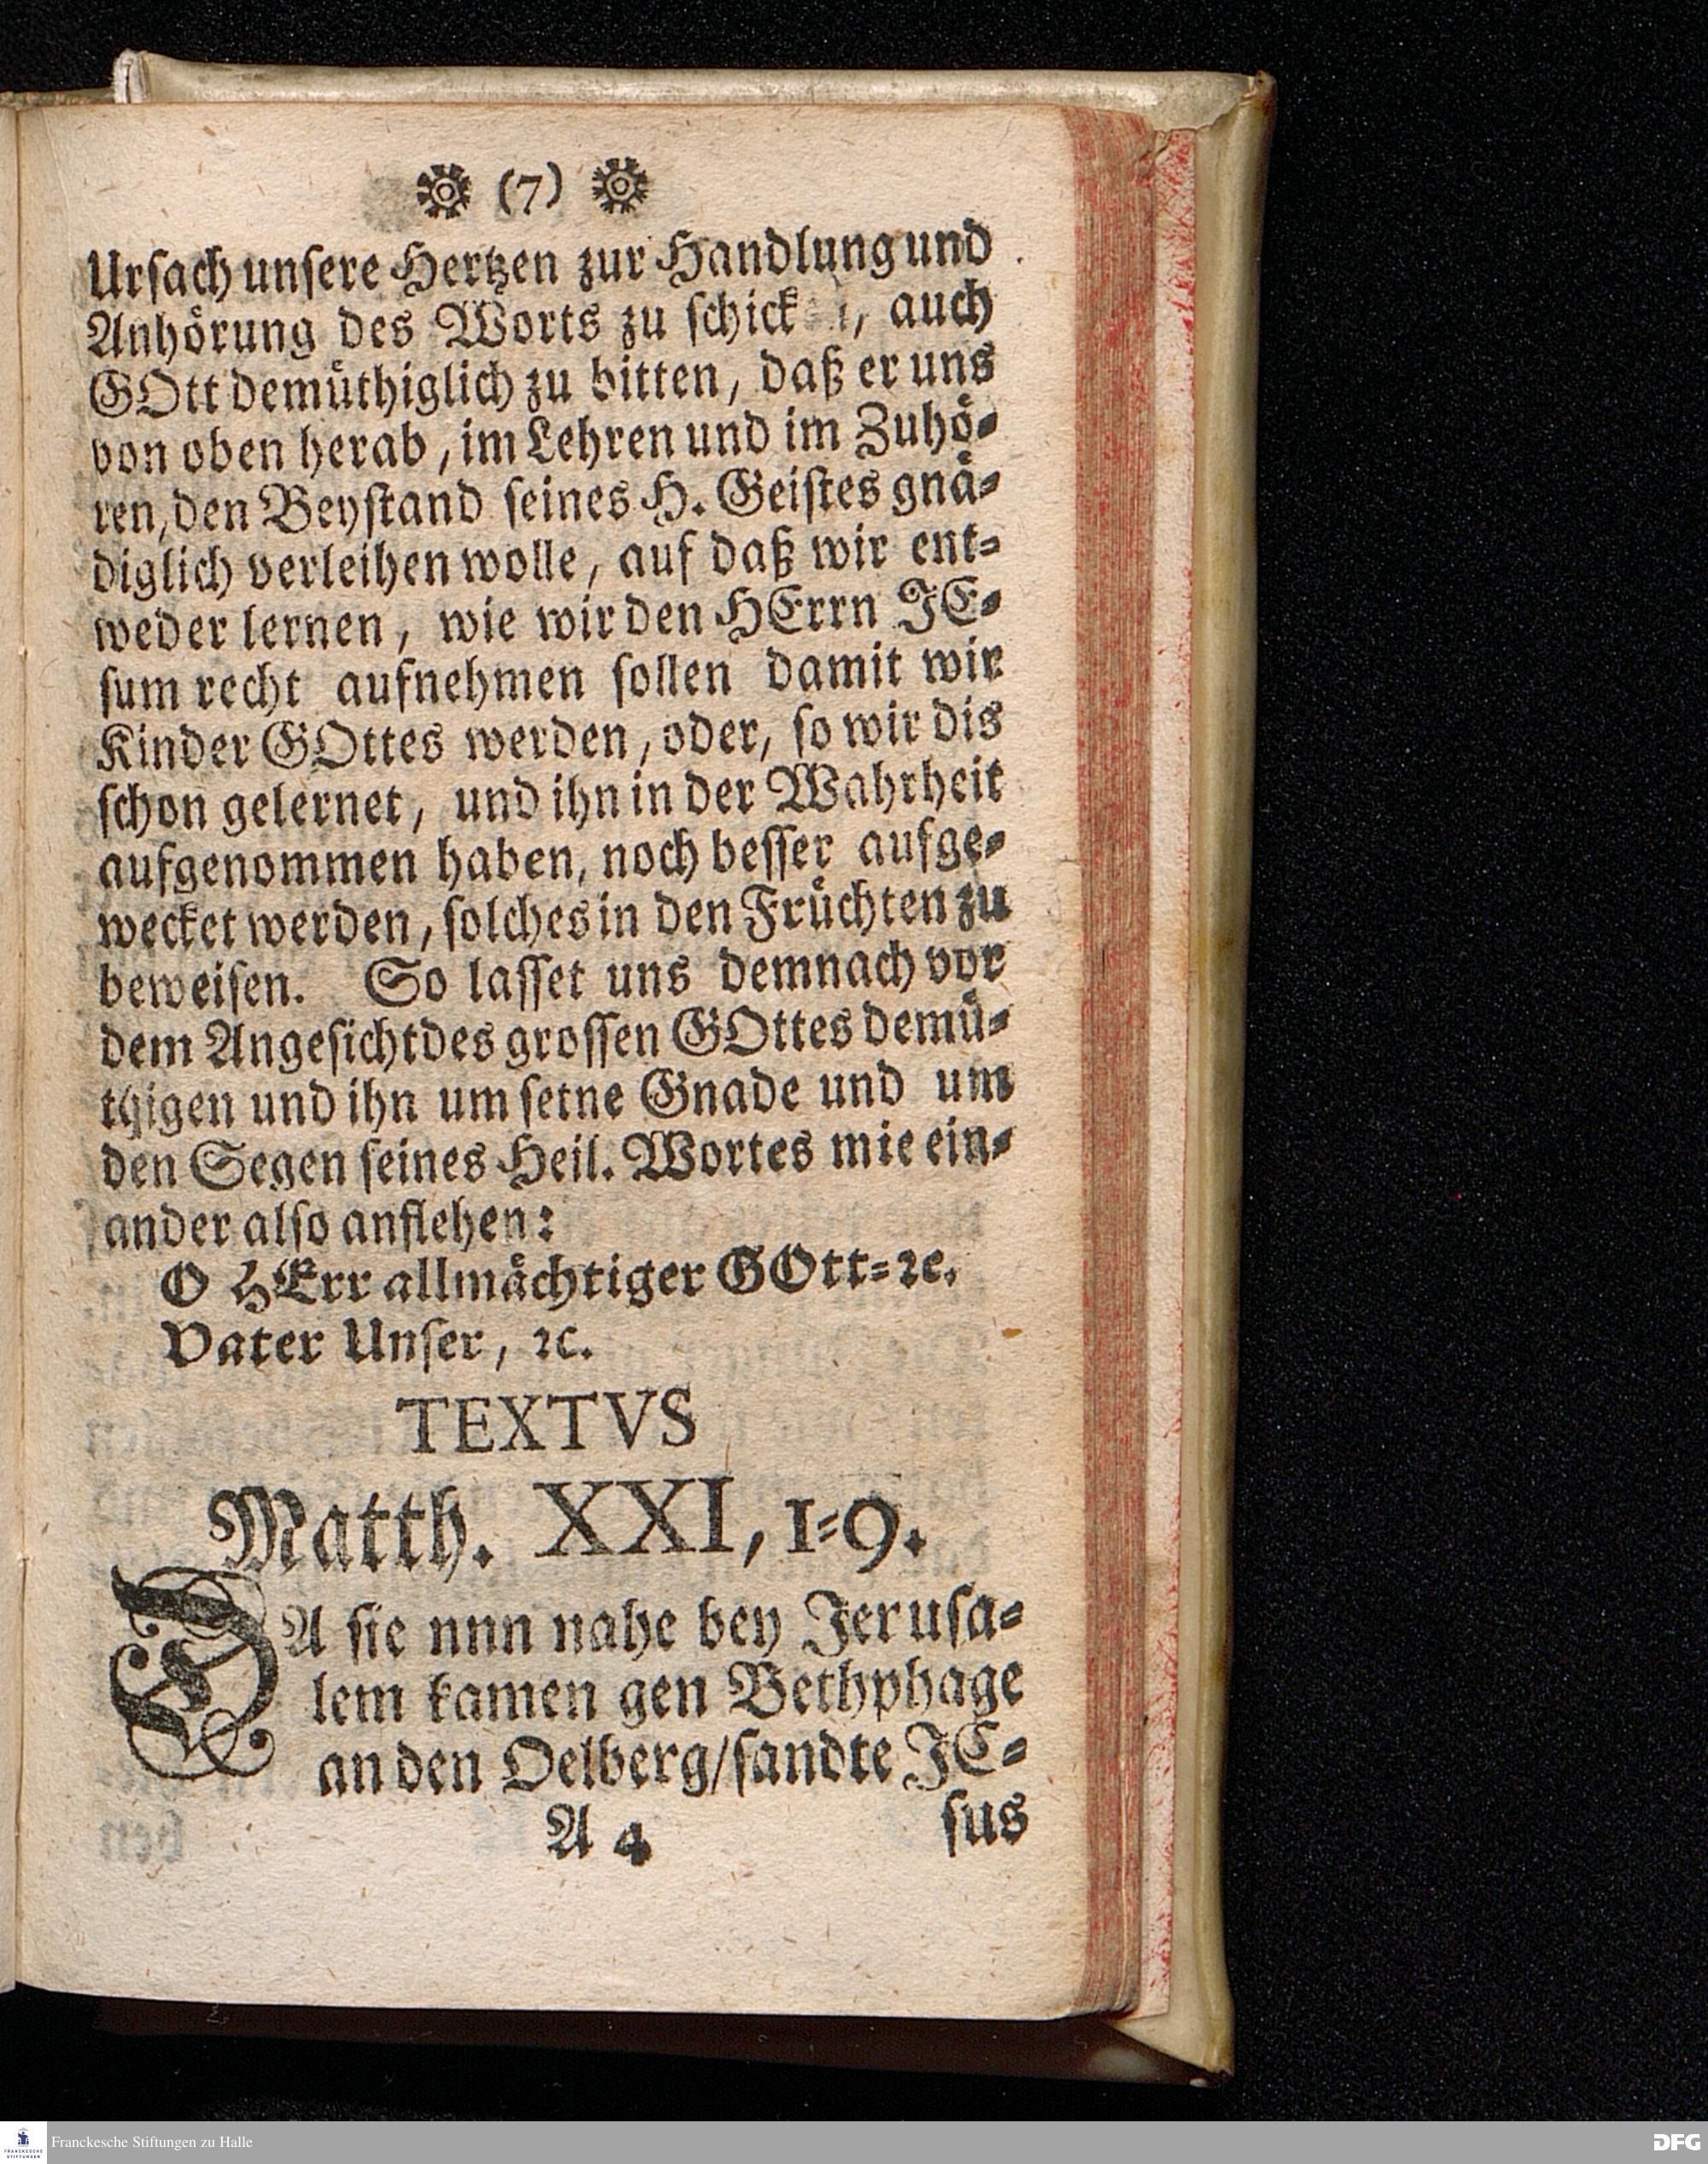 (7)
Ursach unsere Hertzen zur Handlung und
Anhörung des Worts zu , auch
GOtt demüthiglich zu bitten, daß er uns
von oben herab, im Lehren und im Zuhö-
ren, den Beystand seines H. Geistes gnä-
diglich verleihen wolle, auf daß wir ent-
weder lernen, wie wir den HErrn JE-
sum recht aufnehmen sollen damit wir
Kinder GOttes werden, oder, so wir dis
schon gelernet, und ihn in der Wahrheit
aufgenommen haben, noch besser aufge-
wecket werden, solches in den Früchten zu
beweisen. So lasset uns demnach vor
dem Angesicht des grossen GOttes demü-
thigen und ihn um setne Gnade und um
den Segen seines Heil. Wortes mie ein-
ander also anflehen:
O HErr allmächtiger GOtt- ꝛc.
Vater Unser, ꝛc.
TEXTVS
Matth. XXI, 1-9.
DA sie nnn nahe bey Jerusa-
lem kamen gen Bethphage
an den Oelberg/ sandte JE-
A 4 sus
Franckesche Stiftungen zu Halle
FRANCKESCHE
STIFTUNGEN
DFG